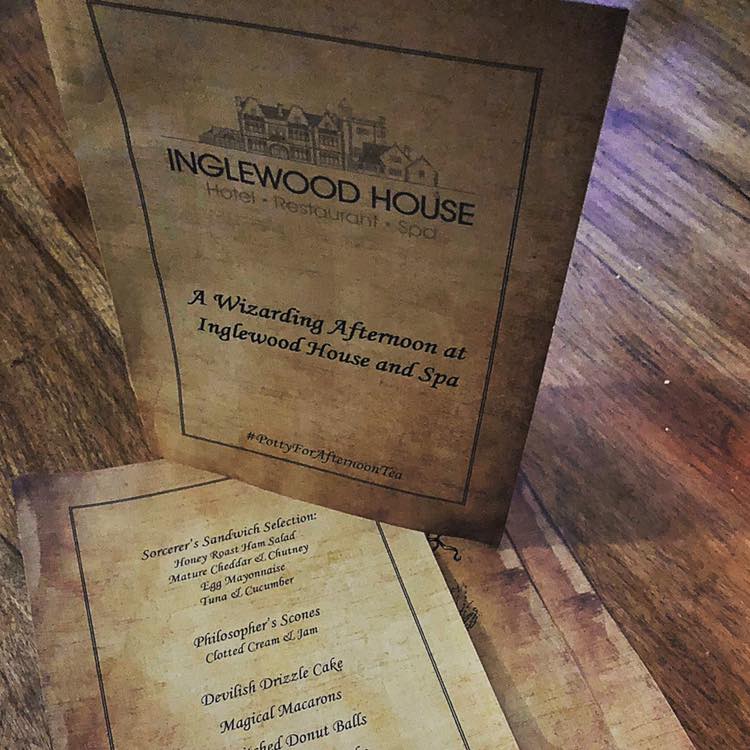 INGLEWOOD HOUSE
Hotel • Restaurant • Spa
A Wizarding Afternoon at
Inglewood House and Spa
#PottyForAfternoonTea
Sorcerer's Sandwich Selection:
Honey Roast Ham Salad
Mature Cheddar & Chutney
Egg Mayonnaise
Tuna & Cucumber
Philosopher's Scones
Clotted Cream & Jam
Devilish Drizzle Cake
Magical Macarons
Donut Balls